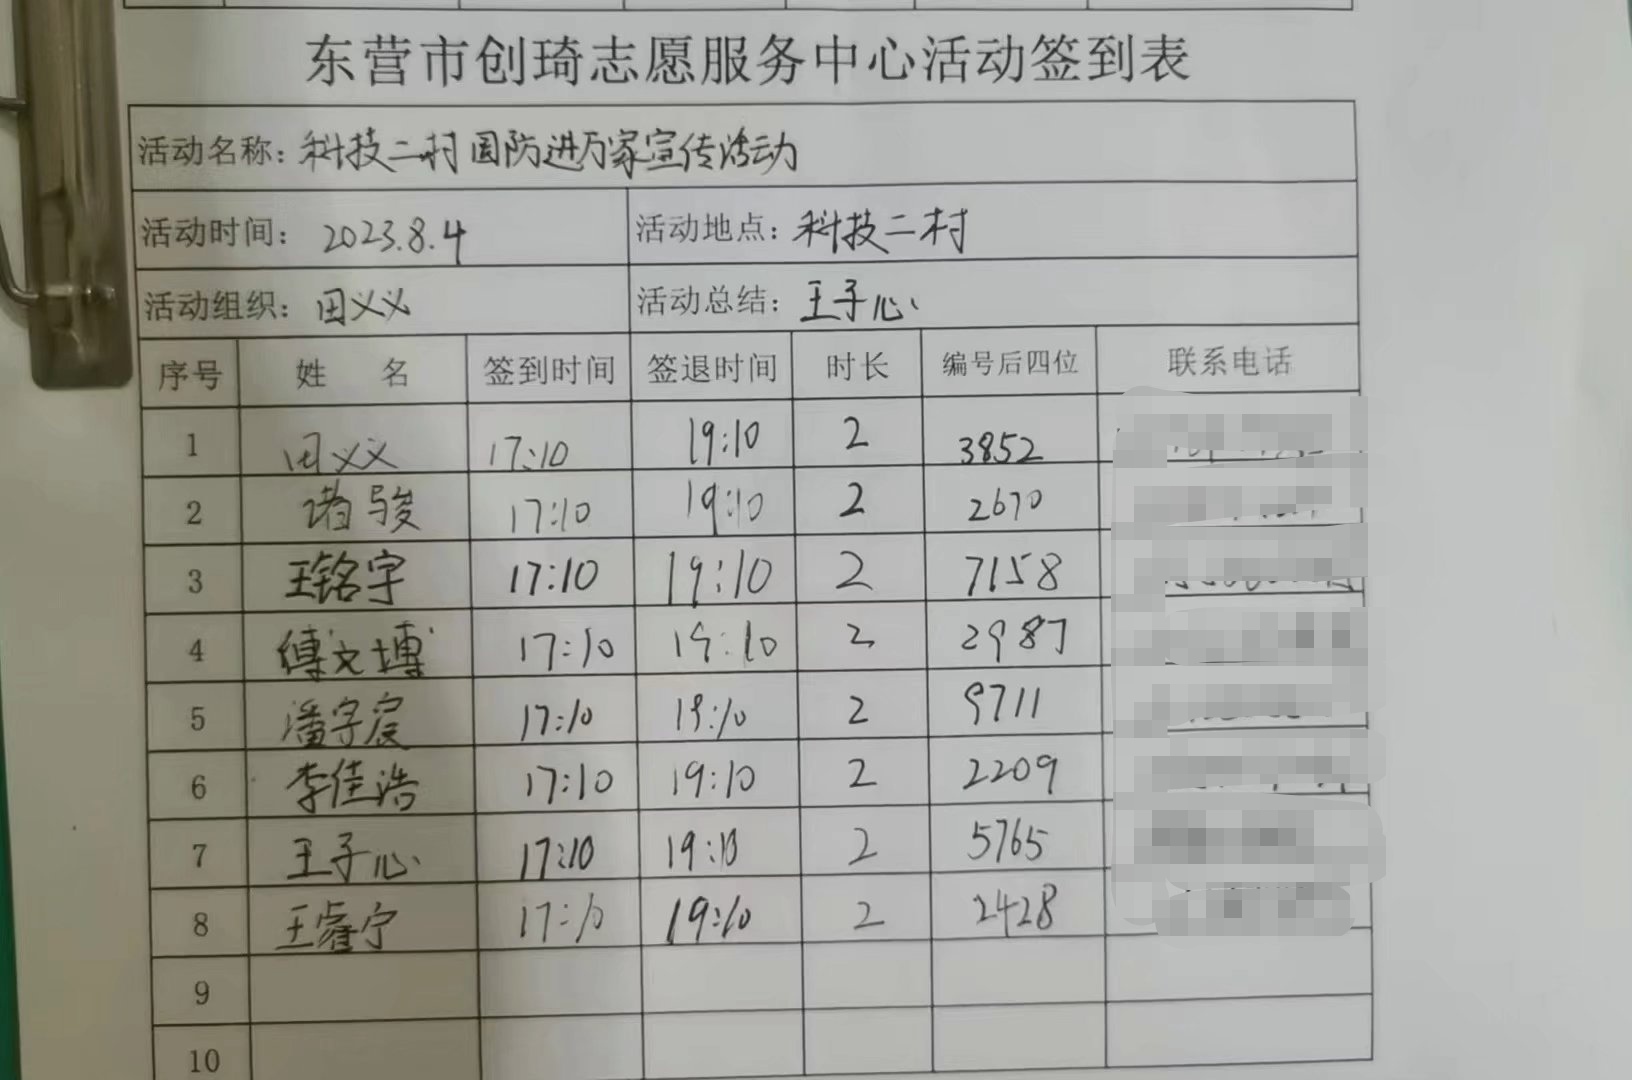 东营市创琦志愿服务中心活动签到表
活动名称：科技二村国防进万家宣传活动
活动时间：2023.8.4 活动地点：科技二村
活动组织：田义义 活动总结：王子心
序号 姓 名 签到时间 签退时间 时长 编号后四位 联系电话
1 田义义 17:10 19:10 2 3852
2 诸骏 17:10 19:10 2 2670
3 王铭宇 17:10 19:10 2 7158
4 傅文博 17:10 19:10 2 2987
5 潘宇宸 17:10 19:10 2 9711
6 李佳浩 17:10 19:10 2 2209
7 王子心 17:10 19:10 2 5765
8 王睿宁 17:10 19:10 2 2428
9
10